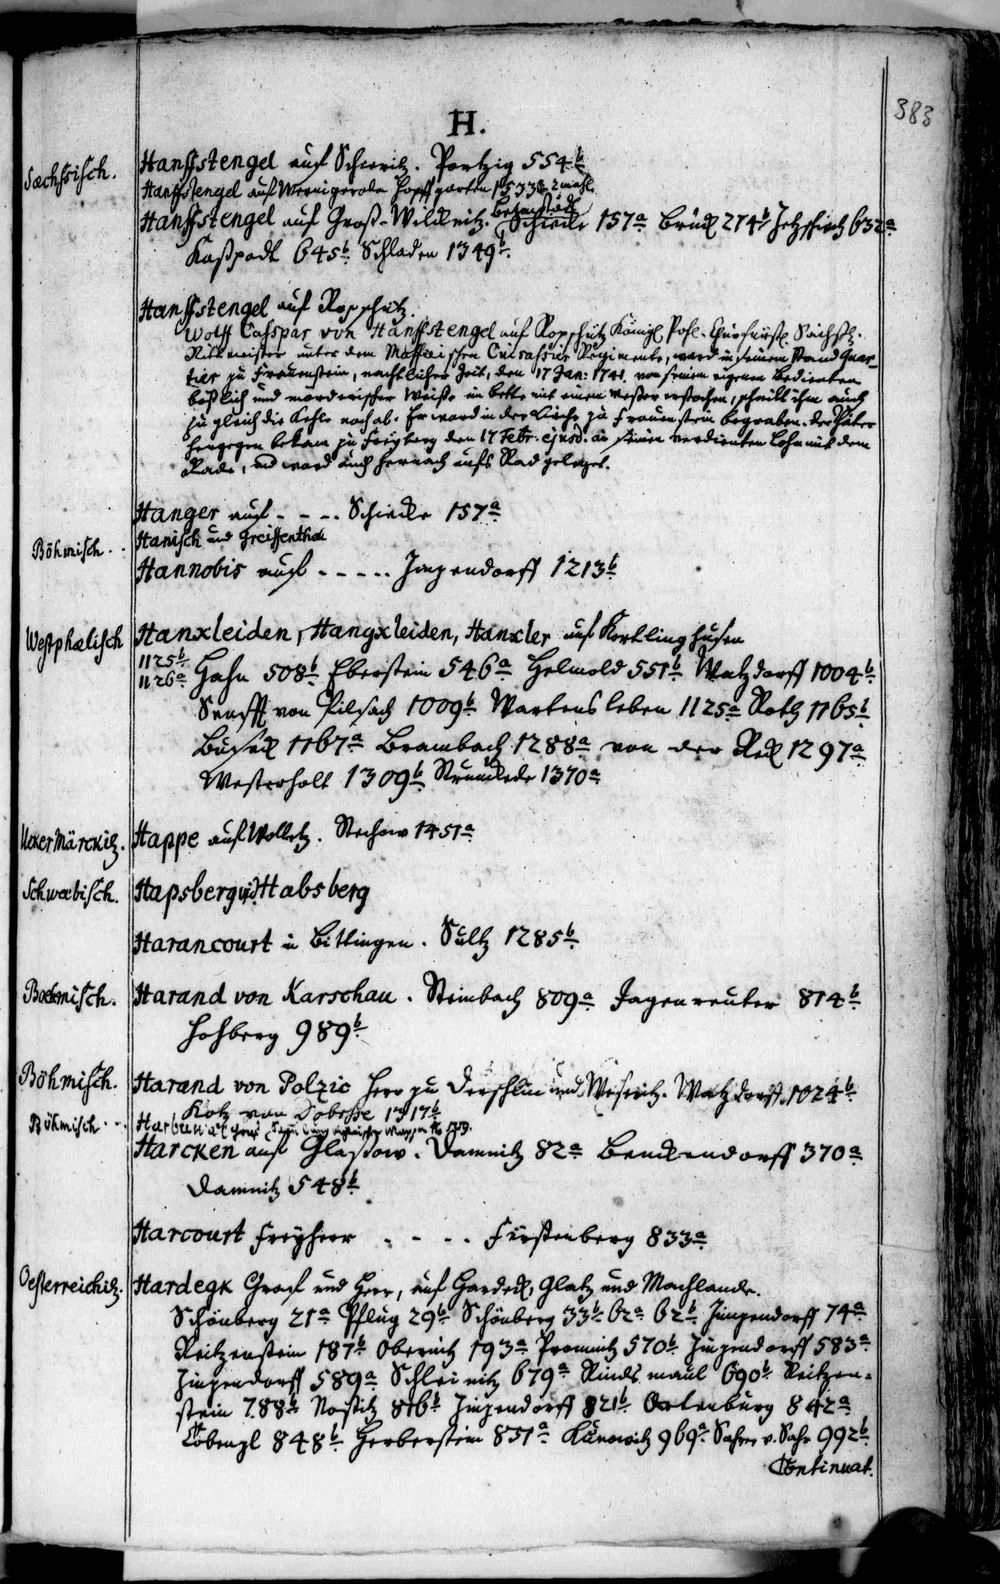 383
H.
Sæchsisch. Hanffstengel auf Schweritz. Portzig 554b
Hanffstengel auf Wernigeroda Hopffgarten 1533b 2mahl.
Hanffstengel auf Groß-Wilcknitz. Schierke 157a Brück 274b 632a
Kaßpodt 645b Schladen 1349b.
Hanffstengel auf Ropschütz.
Wolff Caspar von Hanffstengel auf Ropschütz Königl. Pohl. Churfürstl. Sächß.
Rittmeister unter dem Cuirassier Regimente, ward in seinem Stand Quar-
tier zu Frauenstein, nächtlicher Zeit, den 17 Jan: 1741. von seinem eigenen Bedienten
boßlich und mörderischer Weise im Bette mit einem Messer erstochen, schnitt ihm auch
zu gleich die Kehle noch ab. Er ward in der Kirche zu Frauenstein begraben. Der Thäter
hergegen bekam zu Freyberg den 17 Febr. ejusd. an seinen verdienten Lohn mit dem
Rade, und ward auch hernach aufs Rad geleget.
Hanger auf - - - . Schierke 157a
Böhmisch. . Hanisch und Greiffenthal
Hannobis auf - - - - . Zinzendorff 1213b
Westphælisch Hanxleiden, Hangxleiden, Hanxler auf Kortlinghusen
1125b 1126a Hahn 508b Eberstein 546a Helmold 551b Watzdorff 1004b
Senfft von Pilsach 1009b Wartensleben 1125a Roth 1165b
Buseck 1167a Brambach 1288a von der Reck 1297a
Westerholt 1309b Strünckede 1370a
UckerMärckis. Happe auf Wolletz. Stechow 1451a
Schwæbisch. Hapsberg vid Habsberg
Harancourt in Bitlingen. Sultz 1285b
Boehmisch. Harand von Karschau. Steinbach 809a Jagenreuter 814b
Hohberg 989b
Böhmisch. Harand von Polzic Herr zu und Weseritz. Watzdorff 1024b
Kotz von Dobrsse 1717b
Böhmisch. .
Harcken auf Glassow. Damnitz 82a Benckendorff 370a
Damnitz 548b
Harcourt Freyherr . - - . Fürstenberg 833a
Oesterreichis. Hardegk Graf und Herr, auf Hardeck, Glatz und Machlande.
Schönberg 21a Pflug 29b Schönberg 33b 62a 62b Zinzendorff 74a
Reitzenstein 187b Obernitz 193a Promnitz 570b Zinzendorff 583a
Zinzendorff 589a Schleinitz 679a Rindsmaul 690b Reitzen-
stein 788b Nostitz 816b Zinzendorff 821b Ortenburg 842a
Kobenzl 848b Herberstein 851a Kaunitz 969a Sahrer v. Sahr 992b
Continuat.